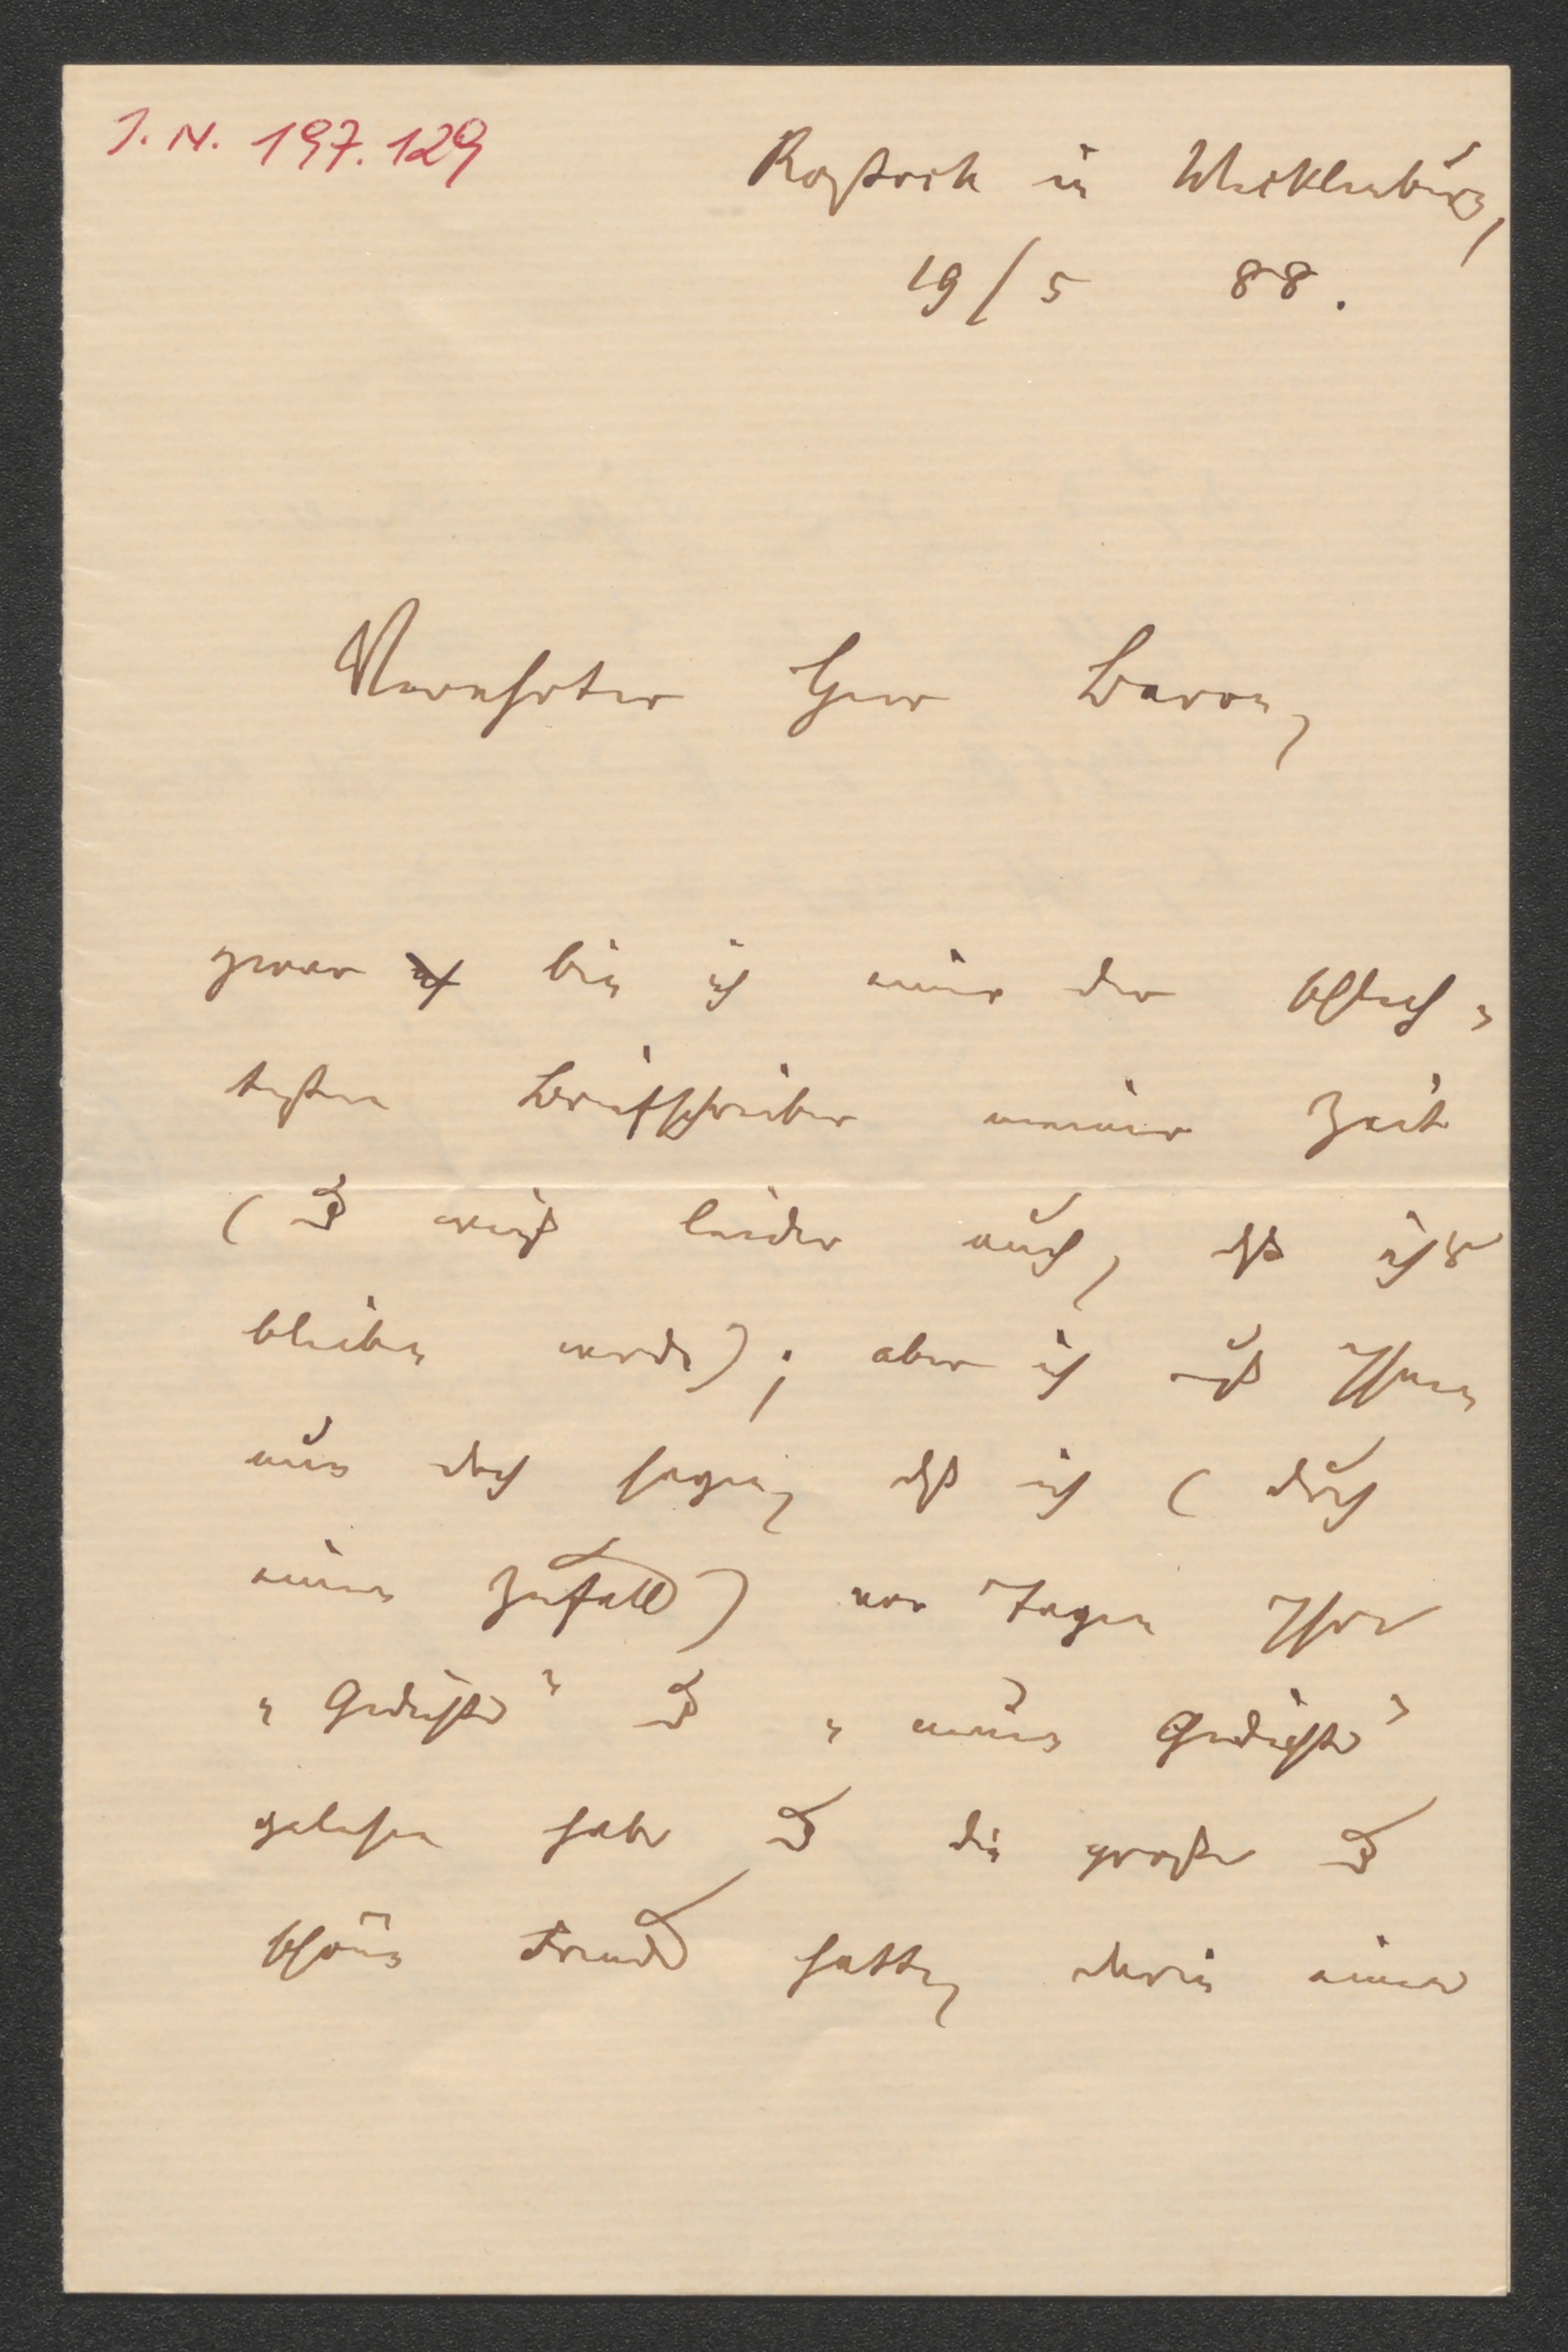 I. N. 197.129
Rostock in Mecklenburg,
19/5 88.
Verehrter Herr Baron,
zwar bin ich einer der schlech-
testen Briefschreiber meiner Zeit
(& weiß leider auch, daß ichs
bleiben werde); aber ich muß Ihnen
nun doch sagen, daß ich (durch
einen Zufall) vor Tagen Ihre
„Gedichte" & „neuen Gedichte"
gelesen habe & die große &
schöne Freude hatte, darin einen